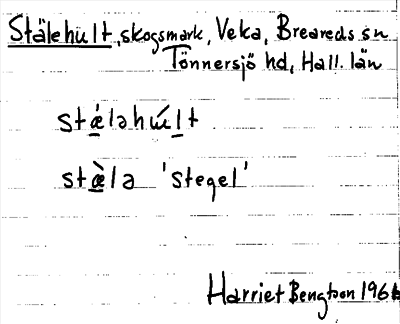 Stälehult, skogsmark, Veka, Breareds sn
Tönnersjö hd, Hall. län
stǽ̱ləhú̱lt
stæ̱̀lə 'stegel'
Harriet Bengtson 1966